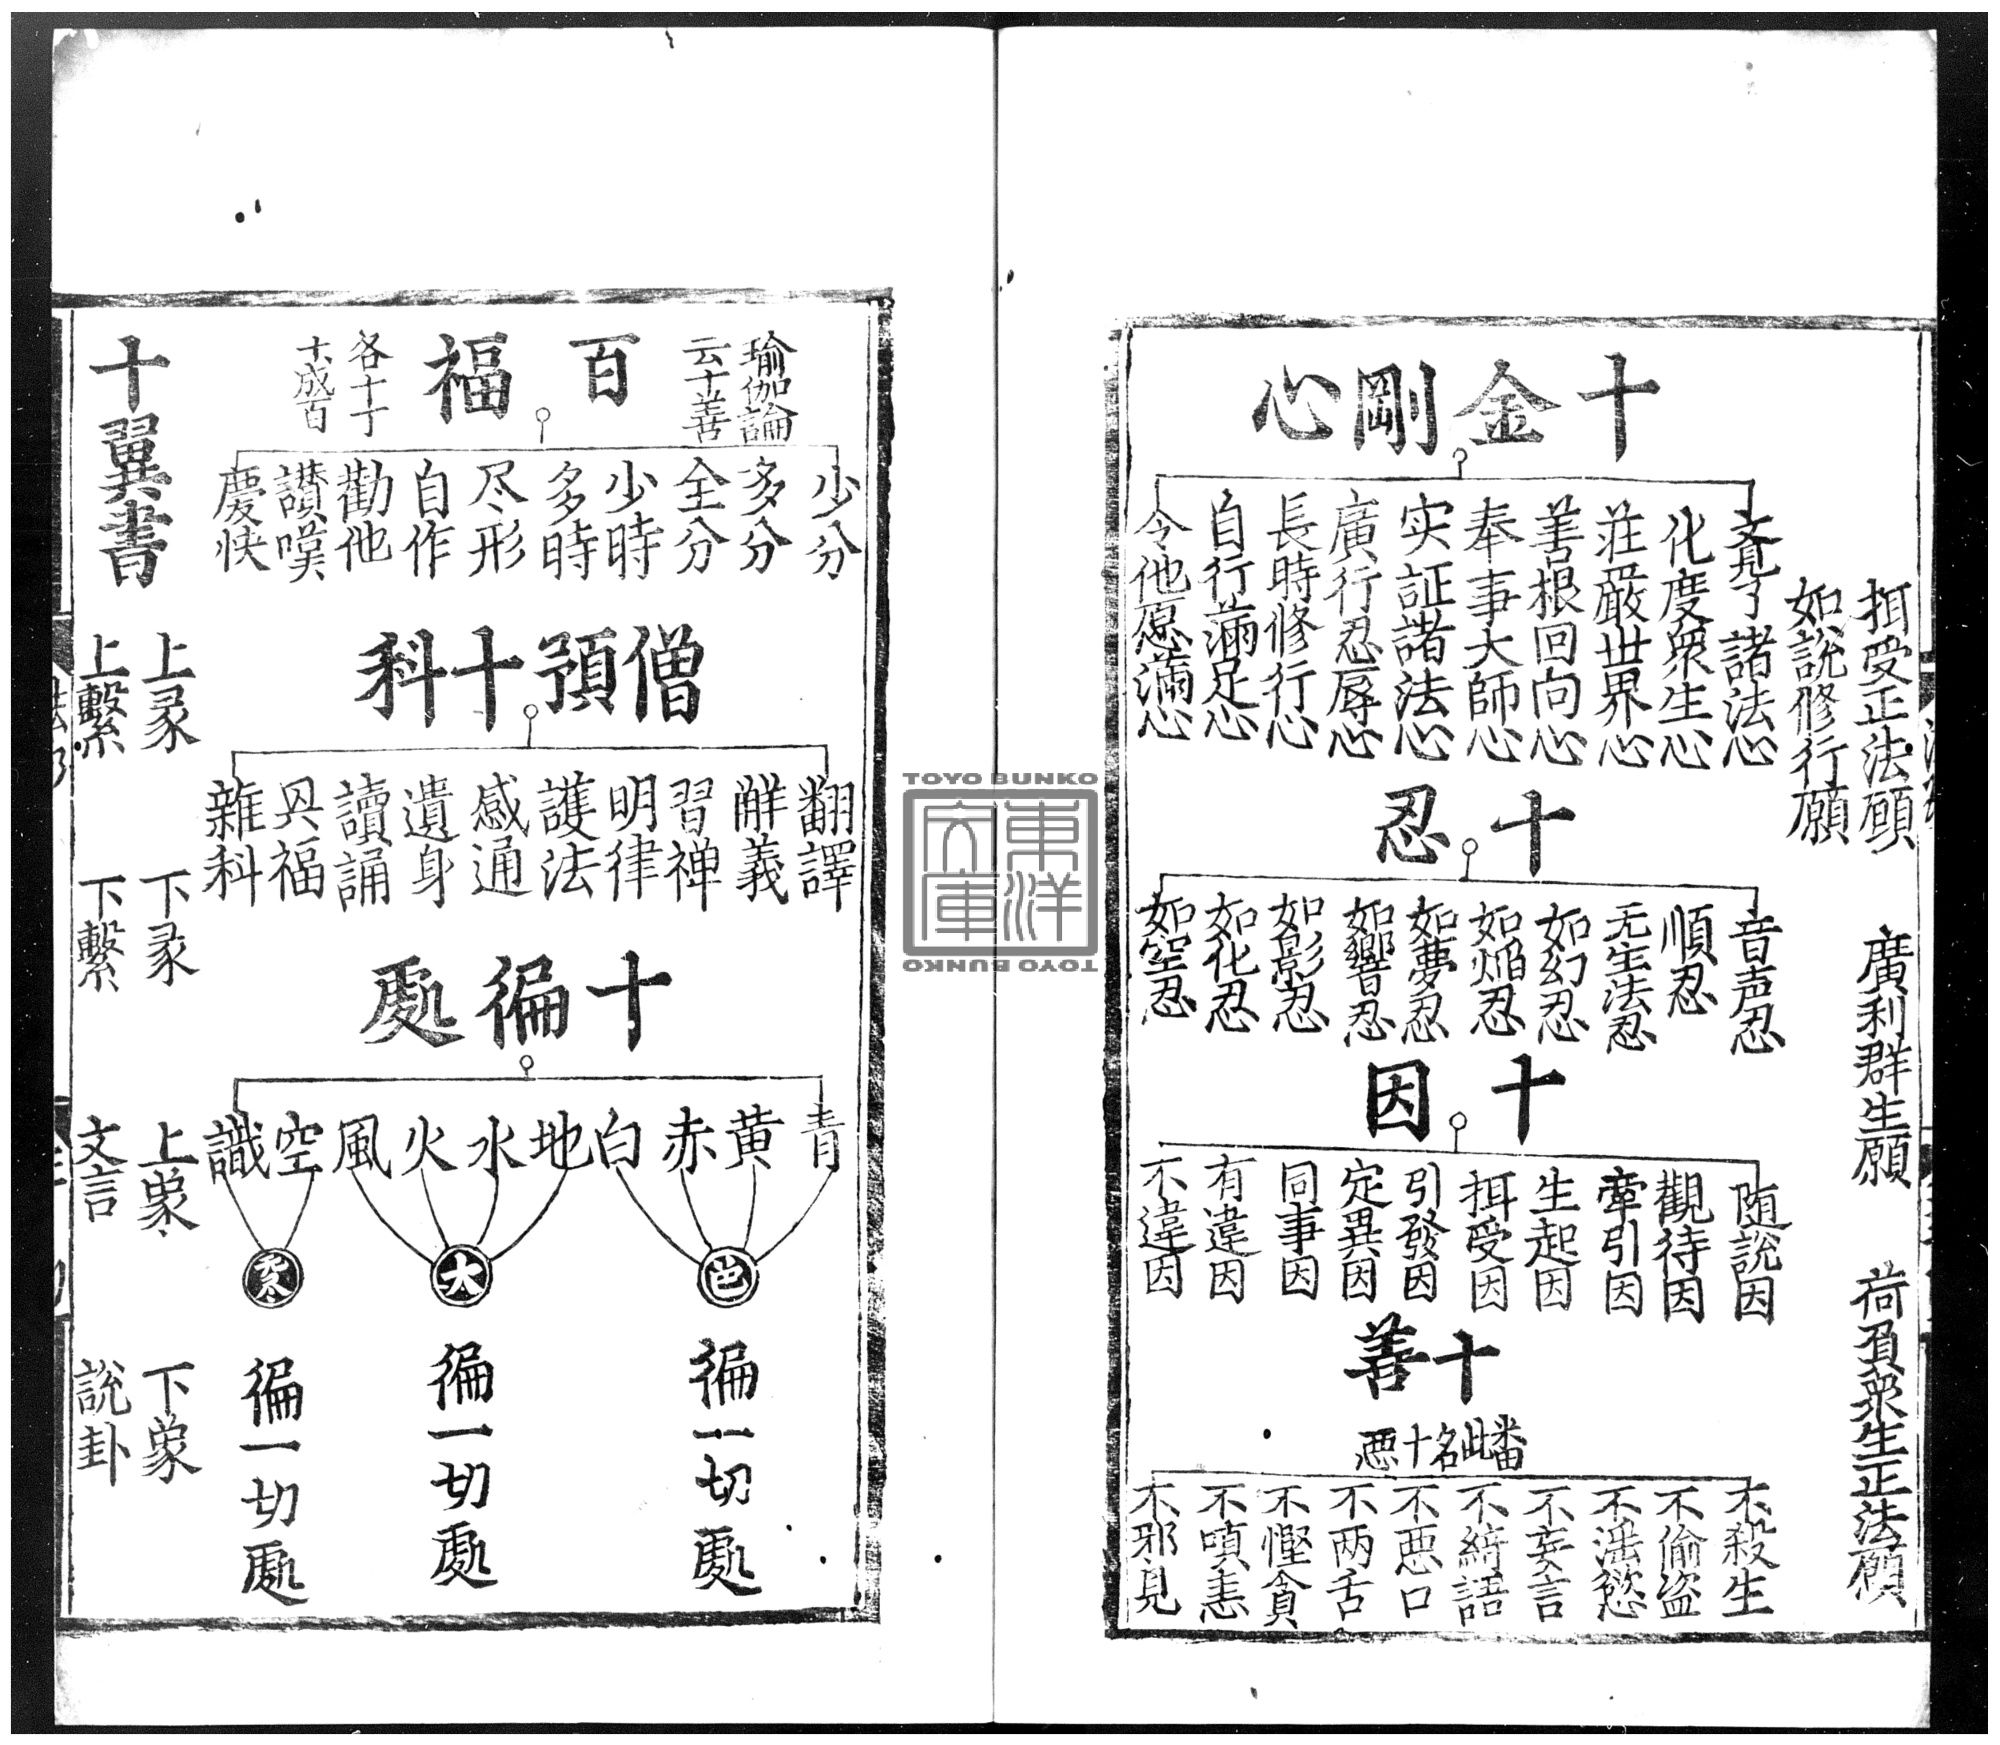 挕受正法願
如說修行願
廣利群生願
荷負衆生正法願
十金剛心
文見了諸法心
化度衆生心
荘嚴世界心
善根回向心
奉事大師心
实証諸法心
廣行忍辱心
長時修行心
自行滿足心
令他愿滿心
十忍
音声忍
順忍
无生法忍
如幻忍
如焔忍
如夢忍
如響忍
如影忍
如化忍
如空忍
十因
随說因
觀待因
牽引因
生起因
挕受因
引發因
定異因
同事因
有違因
不違因
十善
番此名十悪
不殺生
不偷盗
不滛慾
不妄言
不綺語
不悪口
不两舌
不慳貪
不嗔恚
不邪見
TOYO BUNKO
東洋文庫
TOYO BUNKO
瑜伽論
云十善
百福
各十丁
十成百
少分
多分
全分
少時
多時
尽形
自作
勸他
讃嘆
慶快
僧預十科
翻譯
觧義
習禅
明律
護法
感通
遺身
讀誦
具福
雜科
十徧處
青
黄
赤
白
地
水
火
風
空
識
色
大
徧一切處
徧一切處
徧一切處
十翼書
上彖
下彖
上象
下象
上繫
下繫
文言
說卦